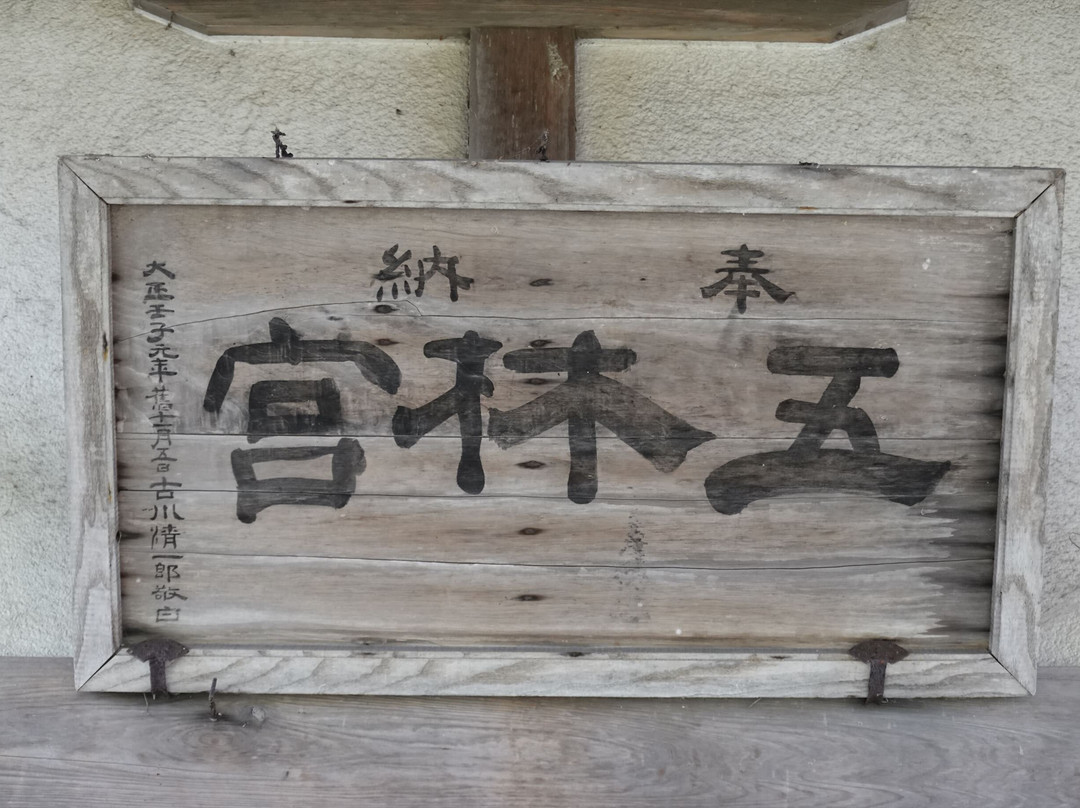 奉納
五林宮
大正壬子元年舊十一月五日古川清一郎敬白